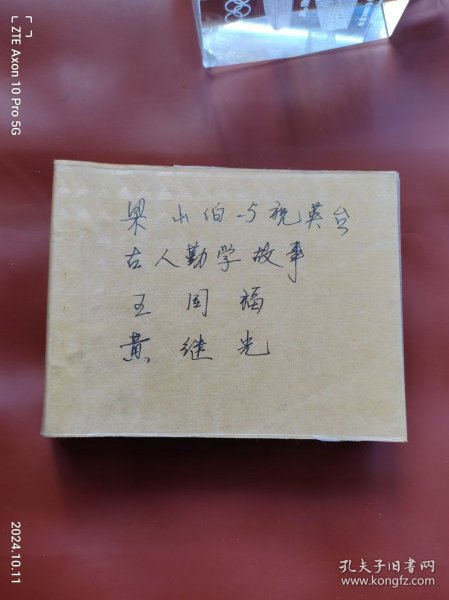 梁山伯与祝英台
古人勤学故事
王国福
黄继光
ZTE Axon 10 Pro 5G
2024.10.11
孔夫子旧书网
www.kongfz.com